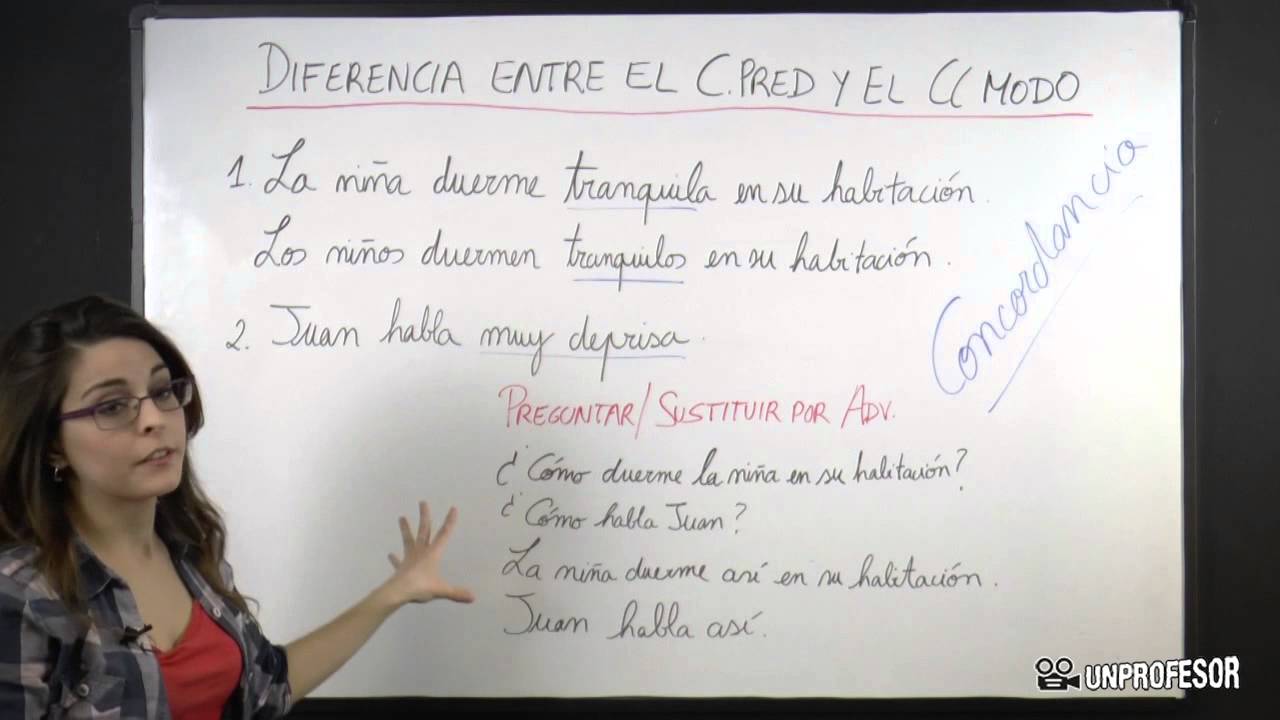 DIFERENCIA ENTRE EL C.PRED Y EL CC MODO
1. La niña duerme tranquila en su habitación.
Los niños duermen tranquilos en su habitación.
2. Juan habla muy deprisa.
Concordancia
PREGUNTAR/SUSTITUIR POR ADV.
¿Cómo duerme la niña en su habitación?
¿Cómo habla Juan?
La niña duerme así en su habitación.
Juan habla así.
UNPROFESOR